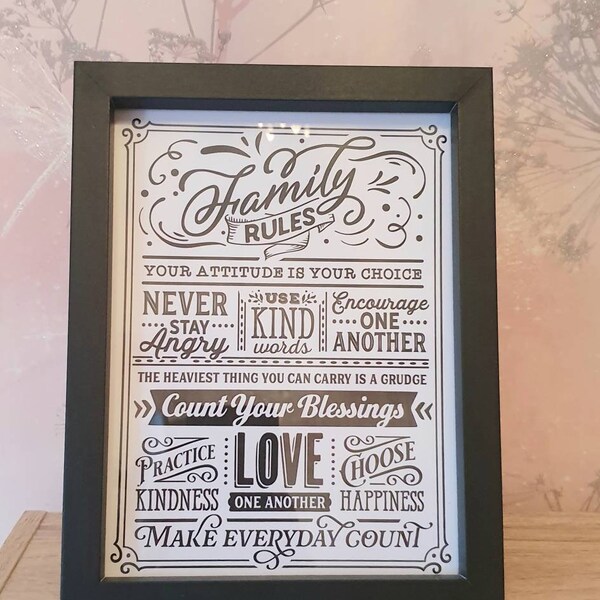 Family
RULES
YOUR ATTITUDE IS YOUR CHOICE
NEVER
STAY
Angry
USE
KIND
words
Encourage
ONE
ANOTHER
THE HEAVIEST THING YOU CAN CARRY IS A GRUDGE
Count Your Blessings
PRACTICE
KINDNESS
LOVE
ONE ANOTHER
CHOOSE
HAPPINESS
MAKE EVERYDAY COUNT